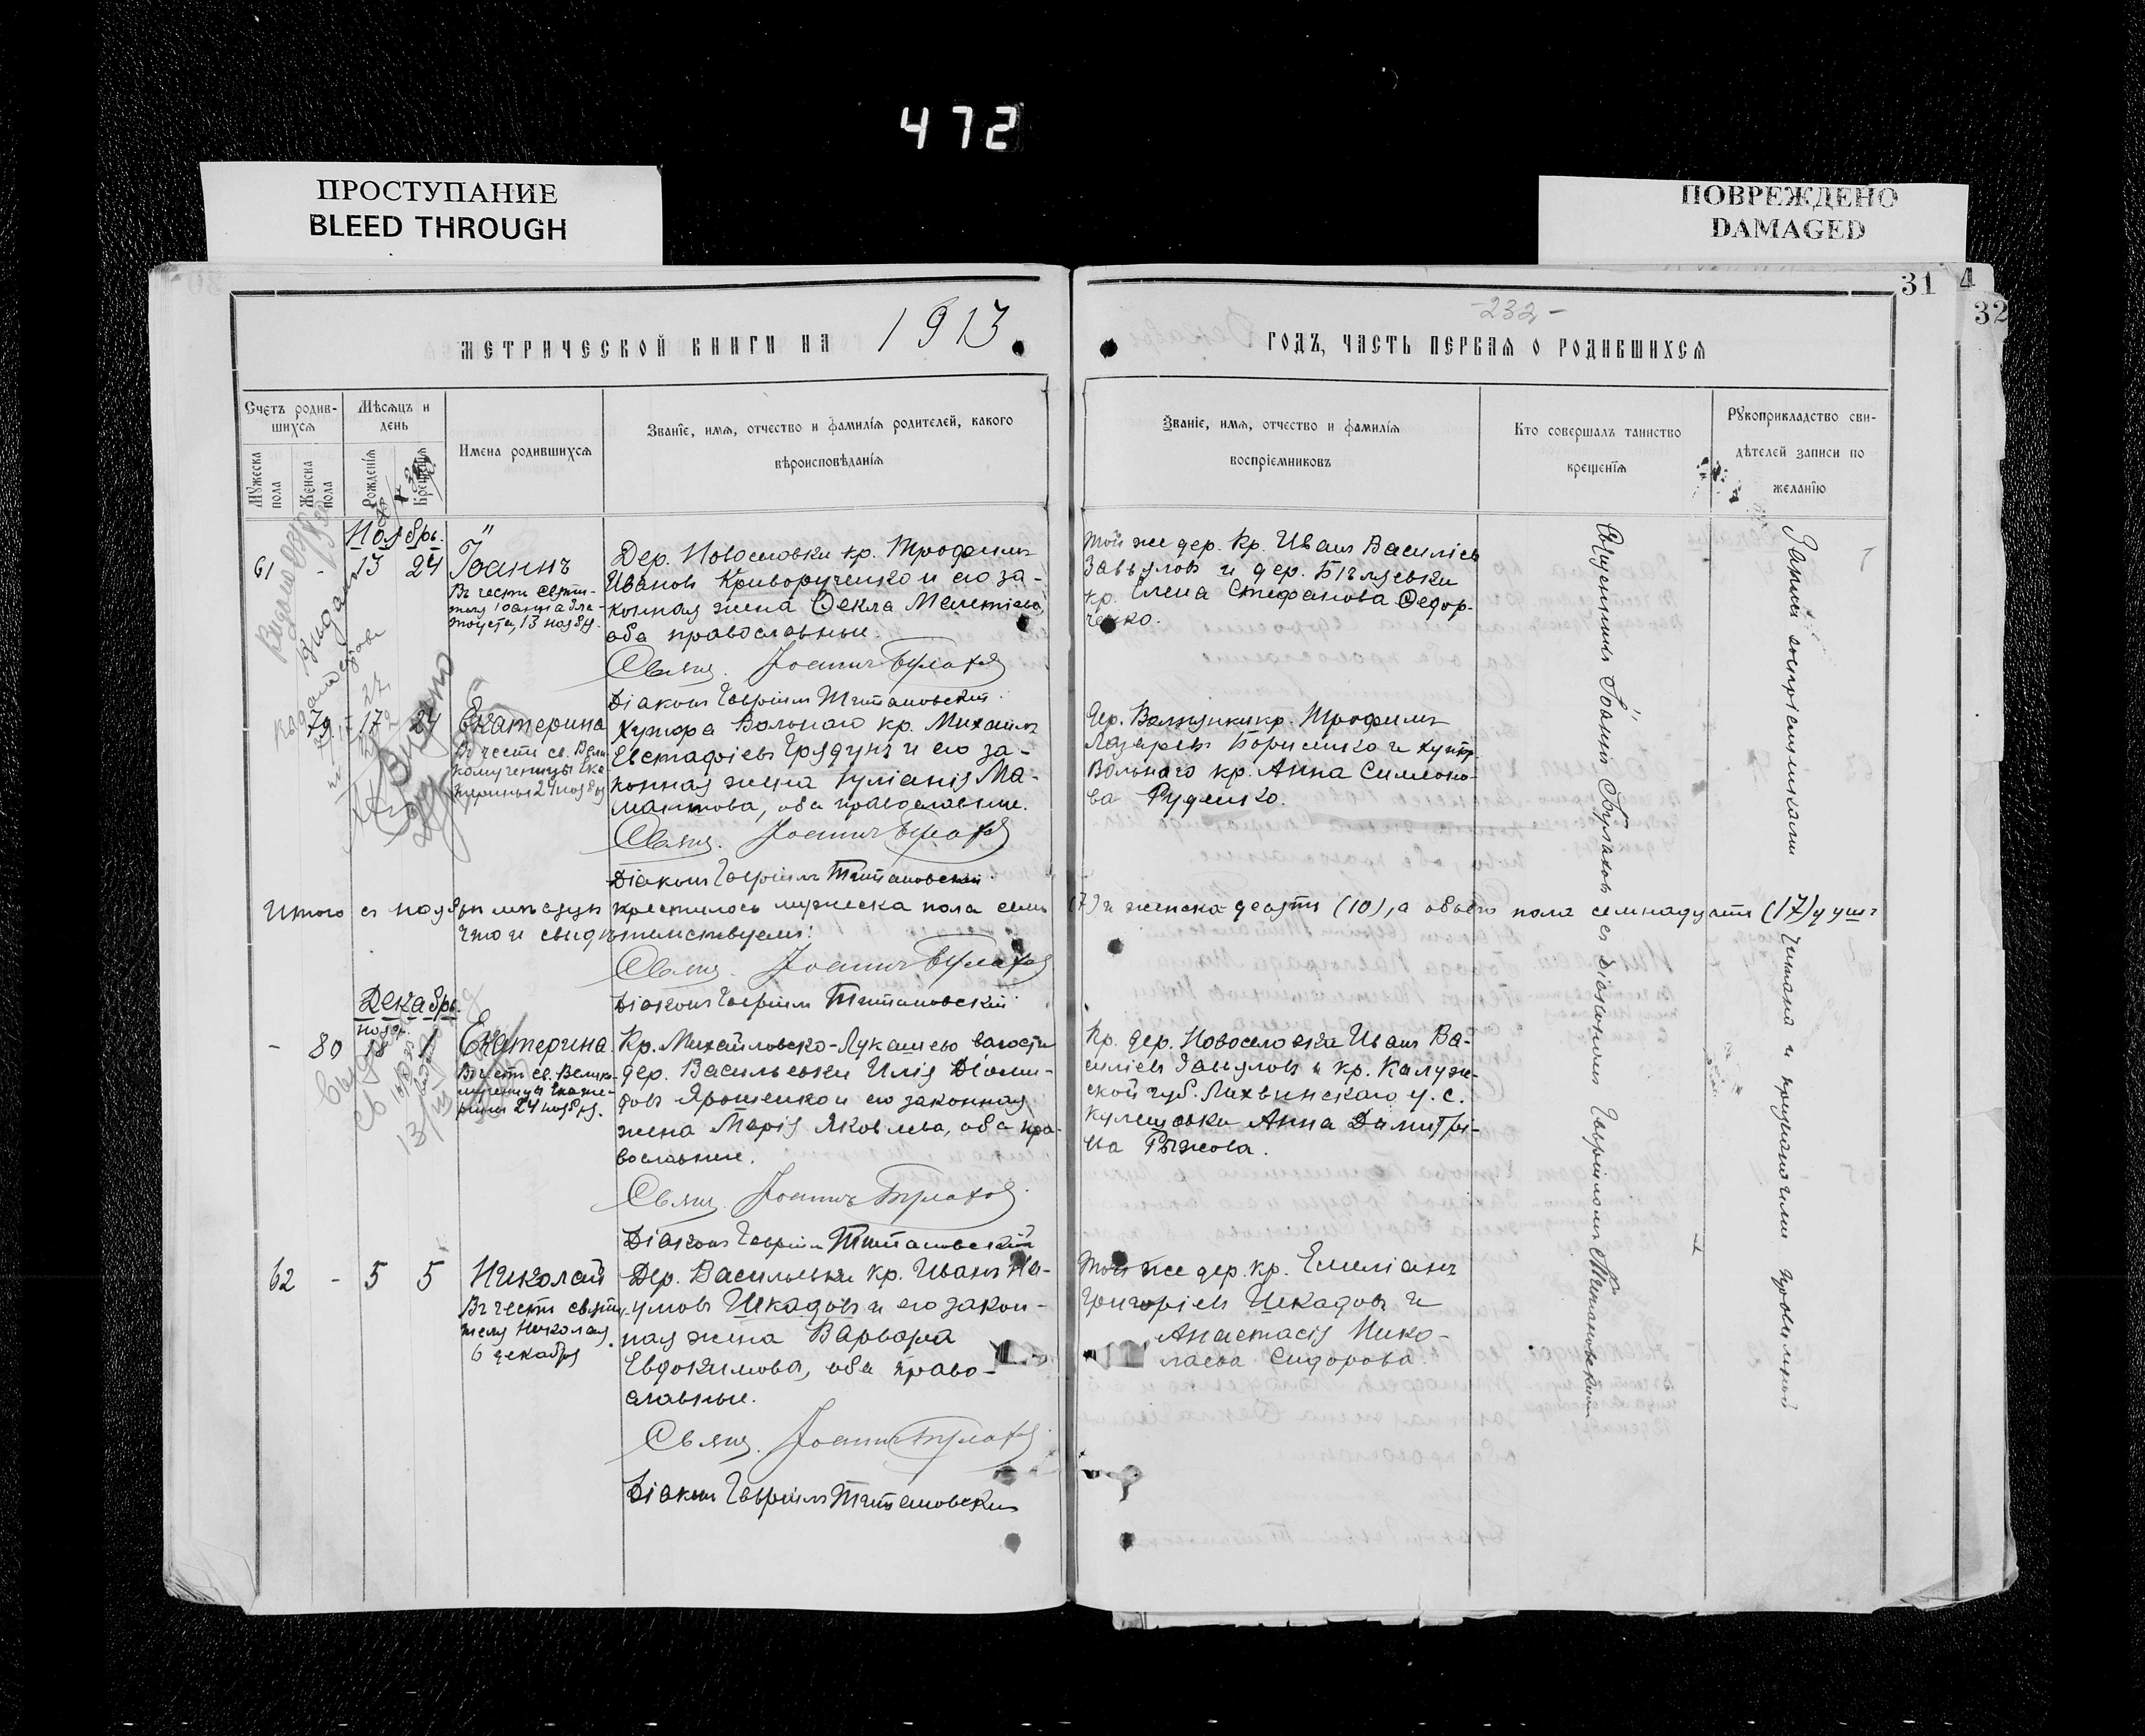 472
ПРОСТУПАНИЕ
BLEED THROUGH
ПОВРЕЖДЕНО
DAMAGED
31
4
32
-232-
МЕТРИЧЕСКОЙ КНИГИ НА 1913.
ГОДЪ, ЧАСТЬ ПЕРВАЯ О РОДИВШИХСЯ
Счетъ родив-
шихся
Мужеска
пола
Женска
пола
Мѣсяцъ и
день
Рожденія
Крещенія
Имена родившихся
Званіе, имя, отчество и фамилія родителей, какого
вѣроисповѣданія
Званіе, имя, отчество и фамилія
воспріемниковъ
Кто совершалъ таинство
крещенія
Рукоприкладство сви-
дѣтелей записи по
желанію
Ноябрь.
61 - 13 24
Іоаннъ
Въ честь святи-
теля Іоанна Зла-
тоуста, 13 ноября.
Дер. Новоселовки кр. Трофимъ
Ивановъ Криворученко и его за-
конная жена Ѳекла Мелетіева,
оба православные.
Свящ. Іоаннъ Булахов
Діаконъ Гавріилъ Титановскій.
Той же дер. кр. Иванъ Василіевъ
Завьялов и дер.
кр. Елена Стефанова Ѳедор-
ченко.
79 17 24
Екатерина
Въ честь св. Вели-
комученицы Ека-
терины 24 ноября
Хутора Вольнаго кр. Михаилъ
Евстафіевъ Грядунъ и его за-
конная жена Іуліанія Ма-
мантова, оба православные.
Свящ. Іоаннъ Булахов
Діаконъ Гавріилъ Титановскій.
Дер. кр. Трофимъ
Лазаревъ Борисенко и хутора
Вольнаго кр. Анна Симеоно-
ва Руденко.
Итого въ ноябрѣ мѣсяцѣ крестилось мужеска пола семь (7) и женска десять (10), а обоего пола семнадцать (17) душъ
что и свидѣтельствуемъ:
Свящ. Іоаннъ Булахов
Діаконъ Гавріилъ Титановскій.
Декабрь.
нояб.
- 80 18 1
Екатерина
Въ честь св. Велико-
мученицы Екате-
рины 24 ноября.
Кр. Михайловско-Лукашево волости
дер. Васильевки Илія Діоми-
довъ Ярошенко и его законная
жена Марія Яковлева, оба пра-
вославные.
Свящ. Іоаннъ Булахов
Діаконъ Гавріилъ Титановскій
Кр. дер. Новоселовки Иванъ Ва-
силіевъ Завьяловъ и кр. Калуж-
ской губ. Лихвинскаго у. с.
Кулешовки Анна Димитрі-
ева Рыжова.
62 - 5 5
Николай
Въ честь святи-
теля Николая
6 декабря
Дер. Васильевки кр. Иванъ На-
умовъ Шкадовъ и его закон-
ная жена Варвара
Евдокимова, оба право-
славные.
Свящ. Іоаннъ Булахов
Діаконъ Гавріилъ Титановскій
Той же дер. кр. Емеліанъ
Григоріевъ Шкадовъ и
Анастасія Нико-
лаева Сидорова.
Священникъ Іоаннъ Булаховъ съ діакономъ Гавріиломъ Титановскимъ